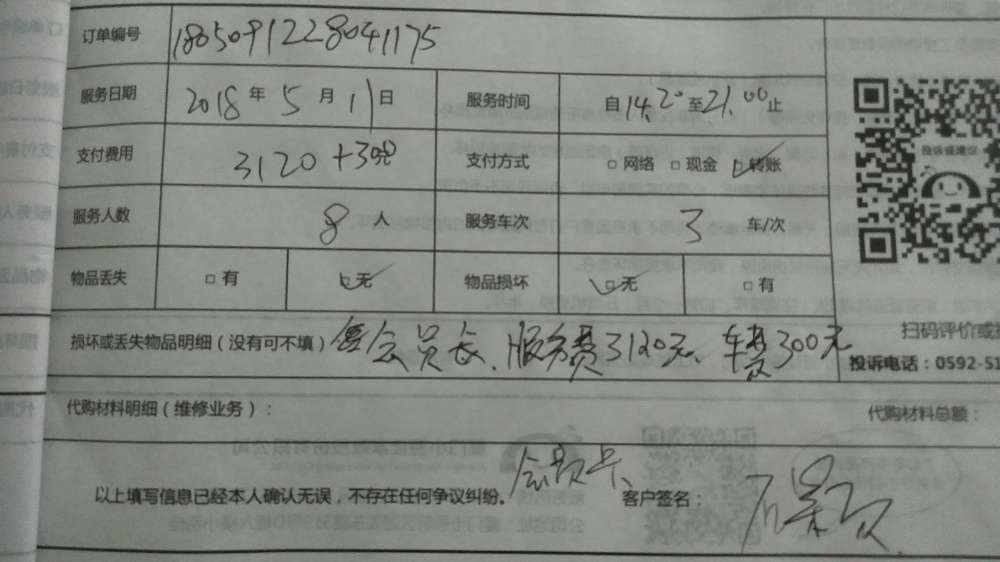 订单编号 1805091228041175
服务日期 2018年5月11日 服务时间 自14.20至21.00止
支付费用 3120+300 支付方式 □网络 □现金 □转账
投诉或建议
服务人数 8人 服务车次 3车/次
物品丢失 □有 □无 物品损坏 □无 □有
损坏或丢失物品明细（没有可不填） 会员长、服务费3120元、车费300元
扫码评价或
投诉电话：0592-51
代购材料明细（维修业务）： 代购材料总额：
以上填写信息已经本人确认无误，不存在任何争议纠纷。 会员卡、 客户签名：